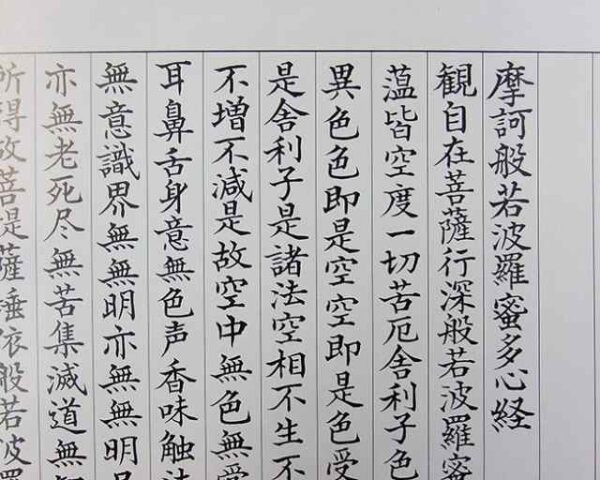 摩訶般若波羅蜜多心経
観自在菩薩行深般若波羅蜜
薀皆空度一切苦厄舎利子色
異色色即是空空即是色受
是舎利子是諸法空相不生不
不増不減是故空中無色無受
耳鼻舌身意無色声香味触法
無意識界無無明亦無無明
亦無老死尽無苦集滅道無
所得故菩提薩埵依般若波羅